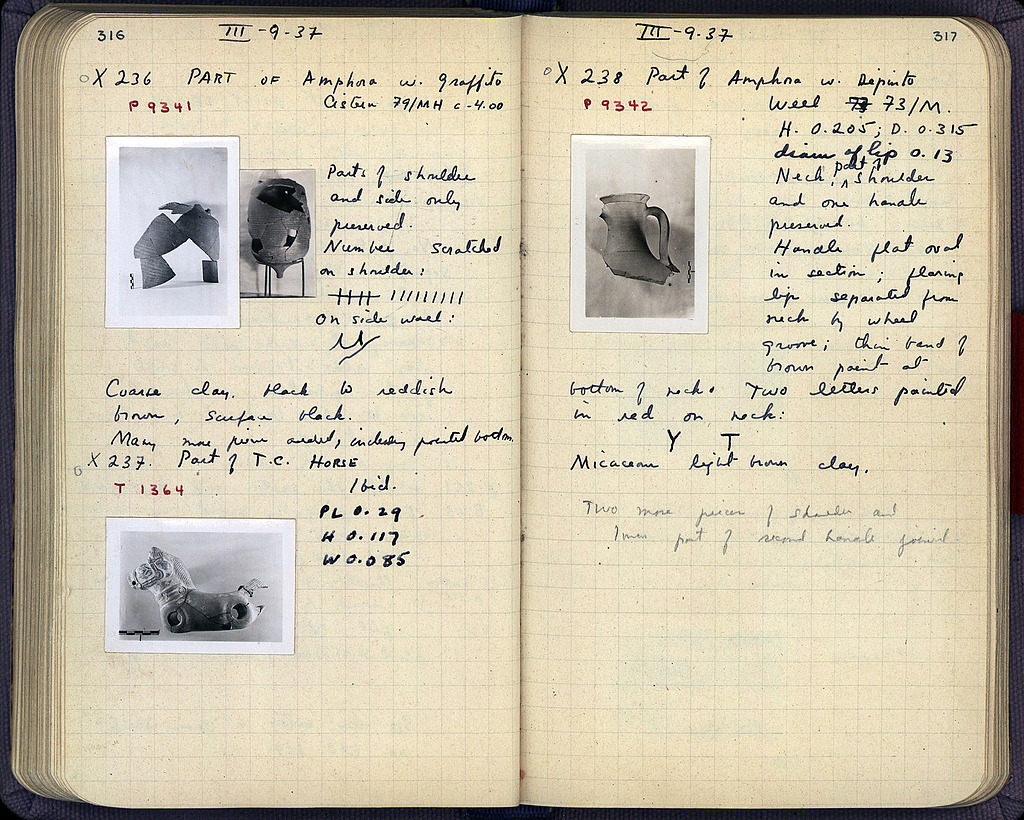 316
III-9-37
X 236 PART OF Amphora w. graffito
P 9341
Cistern 79/MH c-4.00
Parts of shoulder
and side only
preserved.
Number scratched
on shoulder:
On side wall:
Coarse clay, black to reddish
brown, surface black.
Many more pieces added, including pointed bottom.
X 237. Part of T.C. HORSE
T 1364
Ibid.
PL 0.29
H 0.117
W 0.085
317
III-9-37
X 238 Part of Amphora w. Dipinto
P 9342
Well 73/M.
H. 0.205; D. 0.315
diam of lip 0.13
Neck, part of shoulder
and one handle
preserved.
Handle flat oval
in section; flaring
lip separated from
neck by wheel
groove; thin band of
brown paint at
bottom of neck. Two letters painted
in red on neck:
Y T
Micaceous light brown clay.
Two more pieces of shoulder and
lower part of second handle joined.